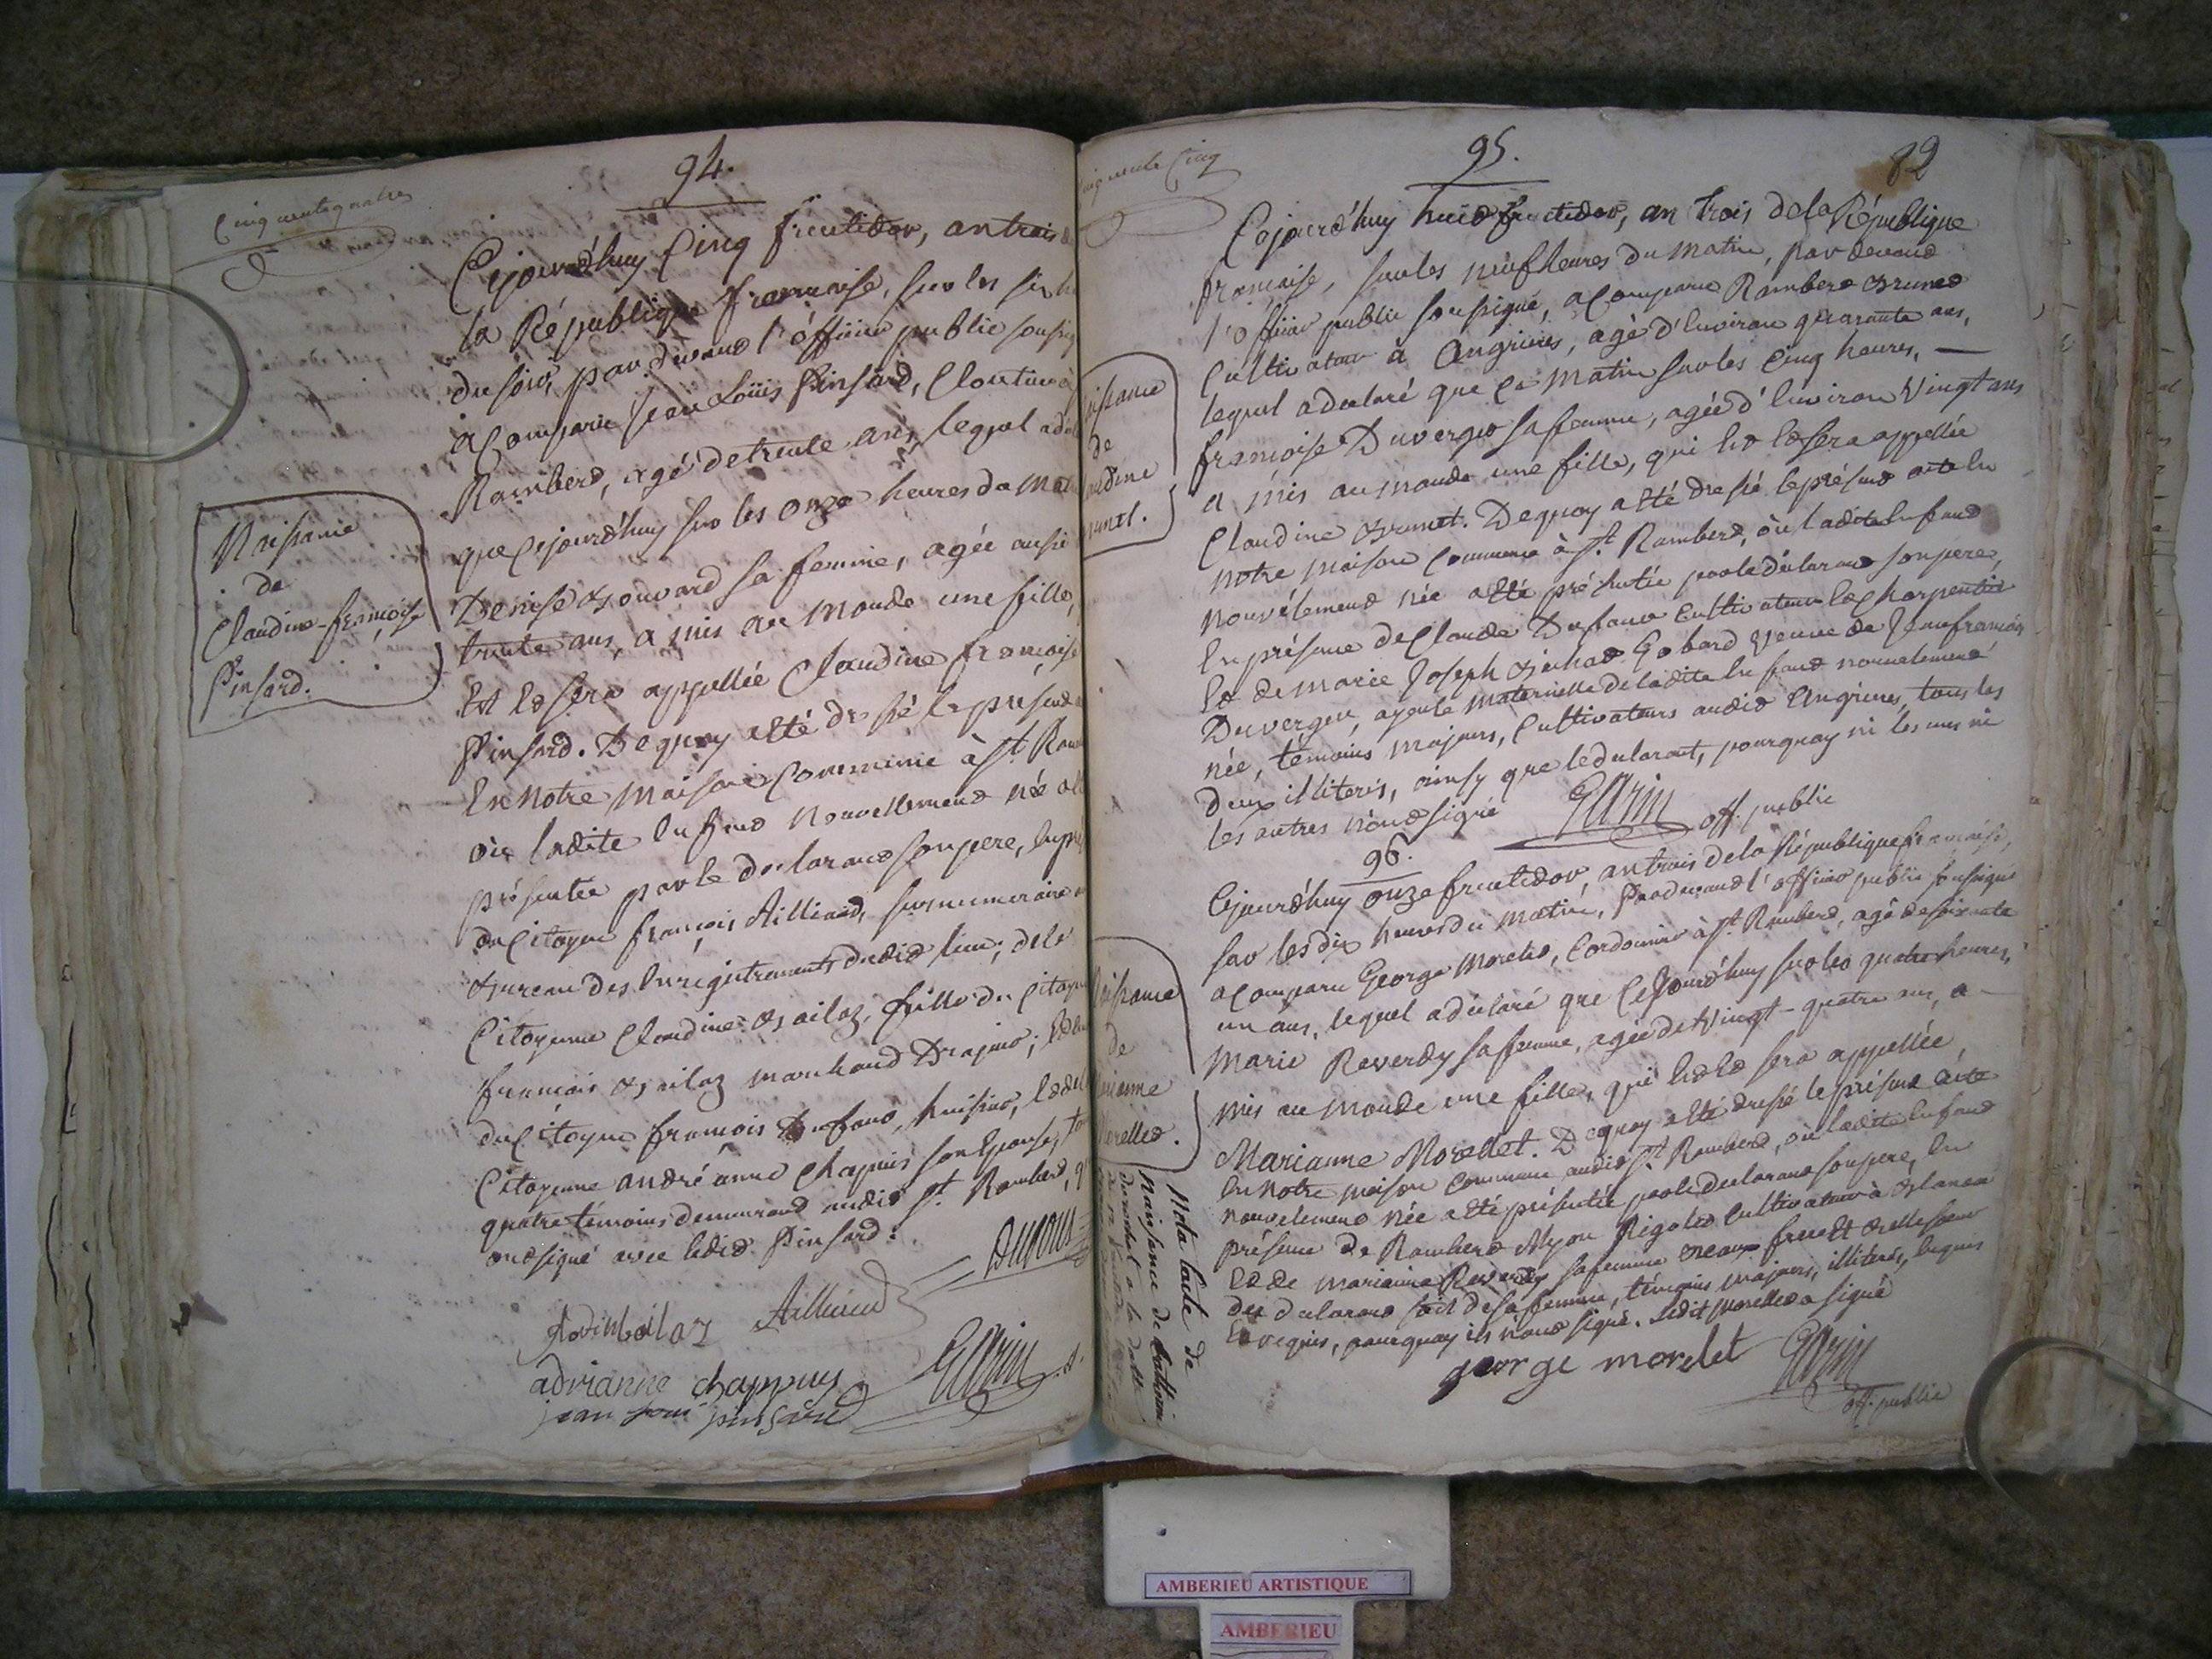 Cinquante quatre
94.
Cejourd'huy Cinq fructidor, an trois de
la République francoise, sur les six h
du soir, par devand l'officier public soussig
a Comparu Jean Loüis Pinsard, Cloutier à
Ramberd, agé de trente ans, lequel a décl
que Cejourd'huy sur les onze heures du mat
Denise Bouvard sa femme, agée aussi
trente ans, a mis au monde une fille,
Est Ed sera appellée Claudine françoise
Pinsard. Dequoy a Eté dressé le présend
En Notre Maison Commune à St. Ram
où ladite Enfand Nouvellement née a Et
présentée par le declarand son pere, En pré
du Citoyen françois Ailliaud, surnumeraire
Bureau des Enregistrements dudid lieu; de la
Citoyenne Claudine Bailaz, fille du Citoyen
françois Bailaz marchand Drapier; Ed
du Citoyen françois Dufour, huissier, Ed de la
Citoyenne andré anne Chapuis son Epouse, to
quatre témoins demeurand audid St. Ramberd, q
ond signé avec ledid Pinsard.
Naissance
de
Claudine-françoise
Pinsard.
Ailliaud
adrianne chappuys
jean loui pinsard
Garin
Cinquante Cinq
95.
82
Cejourd'huy huid fructidor, an trois de la République
françoise, sur les neuf heures du matin, par devand
l'officier public soussigné, a Comparu Ramberd Bruned
Cultivateur à Angrieres, agé d'Environ quarante ans,
lequel a declaré que Ce matin sur les Cinq heures, —
françoise Duverger sa femme, agée d'Environ Vingt ans
a mis au monde une fille, qui Est Ed sera appellée
Claudine Brunet. Dequoy a Eté dressé le présend acte En
notre maison Commune à St. Ramberd, où ladite Enfand
nouvélement née a Eté présentée par le déclarand son pere,
En présence de Claude Dufour Cultivateur Ed Charpentier
Ed de marie Joseph Gobard Veuve de Jean françois
Duverger, ayeule maternelle de ladite Enfand nouvelement
née, témoins majeurs, Cultivateurs audid Angrieres, tous les
deux illiterés, ainsy que le déclarant, pourquoy ni les uns ni
les autres n'ond signé Garin off. public
issance
de
udine
unet.
96.
Cejourd'huy onze fructidor, an trois de la République françoise,
sur les dix heures du matin, Par devand l'officier public soussigné
a Comparu George Moreled, Cordonnier à St. Ramberd, agé de soixante
un ans, lequel a déclaré que Cejourd'huy sur les quatre heures,
Marie Reverdy sa femme, agée de Vingt-quatre ans, a —
mis au monde une fille, qui Est Ed sera appellée
Marianne Morellet. Dequoy a Eté dressé le présend acte
En Notre maison Commune audid St. Ramberd, où ladite Enfand
nouvelement née a Eté présentée par le declarand son pere, En
présence de Ramberd Rigoled Cultivateur à Blanaz
Ed de marianne Reverdy sa femme beaux frere Et belle sœur
du declarand Et de sa femme, témoins majeurs, illiterés, Enquis
Ed requis, pourquoy ils n'ond signé. Ledit Morelled a signé
george morelet Garin
off. public
aissance
de
rianne
orelled.
Nota l'acte de
naissance de
AMBERIEU ARTISTIQUE
AMBERIEU